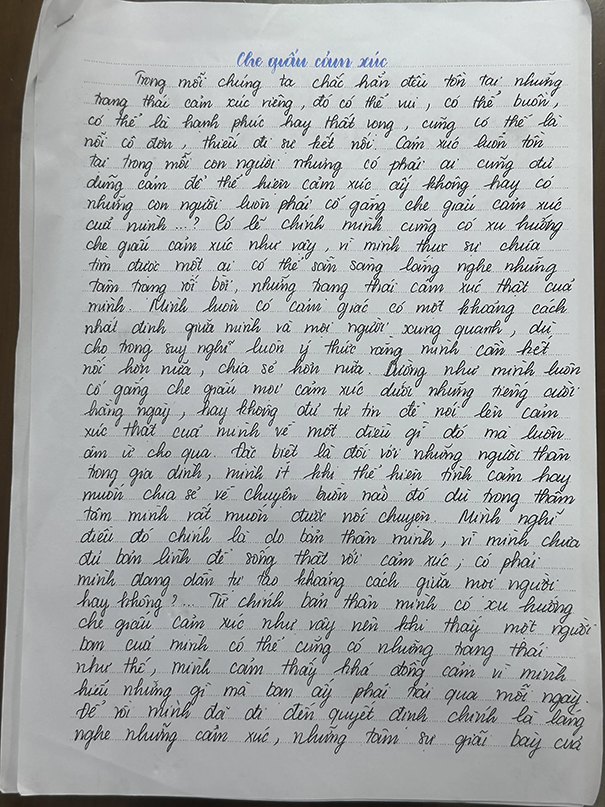 Che giấu cảm xúc
Trong mỗi chúng ta chắc hẳn đều tồn tại những
trạng thái cảm xúc riêng, đó có thể vui, có thể buồn,
có thể là hạnh phúc hay thất vọng, cũng có thể là
nỗi cô đơn, thiếu đi sự kết nối. Cảm xúc luôn tồn
tại trong mỗi con người nhưng có phải ai cũng đủ
dũng cảm để thể hiện cảm xúc ấy không hay có
những con người luôn phải cố gắng che giấu cảm xúc
của mình ...? Có lẽ chính mình cũng có xu hướng
che giấu cảm xúc như vậy, vì mình thực sự chưa
tìm được một ai có thể sẵn sàng lắng nghe những
tâm trạng rối bời, những trạng thái cảm xúc thật của
mình. Mình luôn có cảm giác có một khoảng cách
nhất định giữa mình và mọi người xung quanh, dù
cho trong suy nghĩ luôn ý thức rằng mình cần kết
nối hơn nữa, chia sẻ hơn nữa. Dường như mình luôn
cố gắng che giấu mọi cảm xúc dưới những tiếng cười
hằng ngày, hay không đủ tự tin để nói lên cảm
xúc thật của mình về một điều gì đó mà luôn
ậm ừ cho qua. Đặc biệt là đối với những người thân
trong gia đình, mình ít khi thể hiện tình cảm hay
muốn chia sẻ về chuyện buồn nào đó dù trong thâm
tâm mình rất muốn được nói chuyện. Mình nghĩ
điều đó chính là do bản thân mình, vì mình chưa
đủ bản lĩnh để sống thật với cảm xúc, có phải
mình đang dần tự tạo khoảng cách giữa mọi người
hay không? ... Từ chính bản thân mình có xu hướng
che giấu cảm xúc như vậy nên khi thấy một người
bạn của mình có thể cũng có những trạng thái
như thế, mình cảm thấy khá đồng cảm vì mình
hiểu những gì mà bạn ấy phải trải qua mỗi ngày.
Để rồi mình đã đi đến quyết định chính là lắng
nghe những cảm xúc, những tâm sự giãi bày của